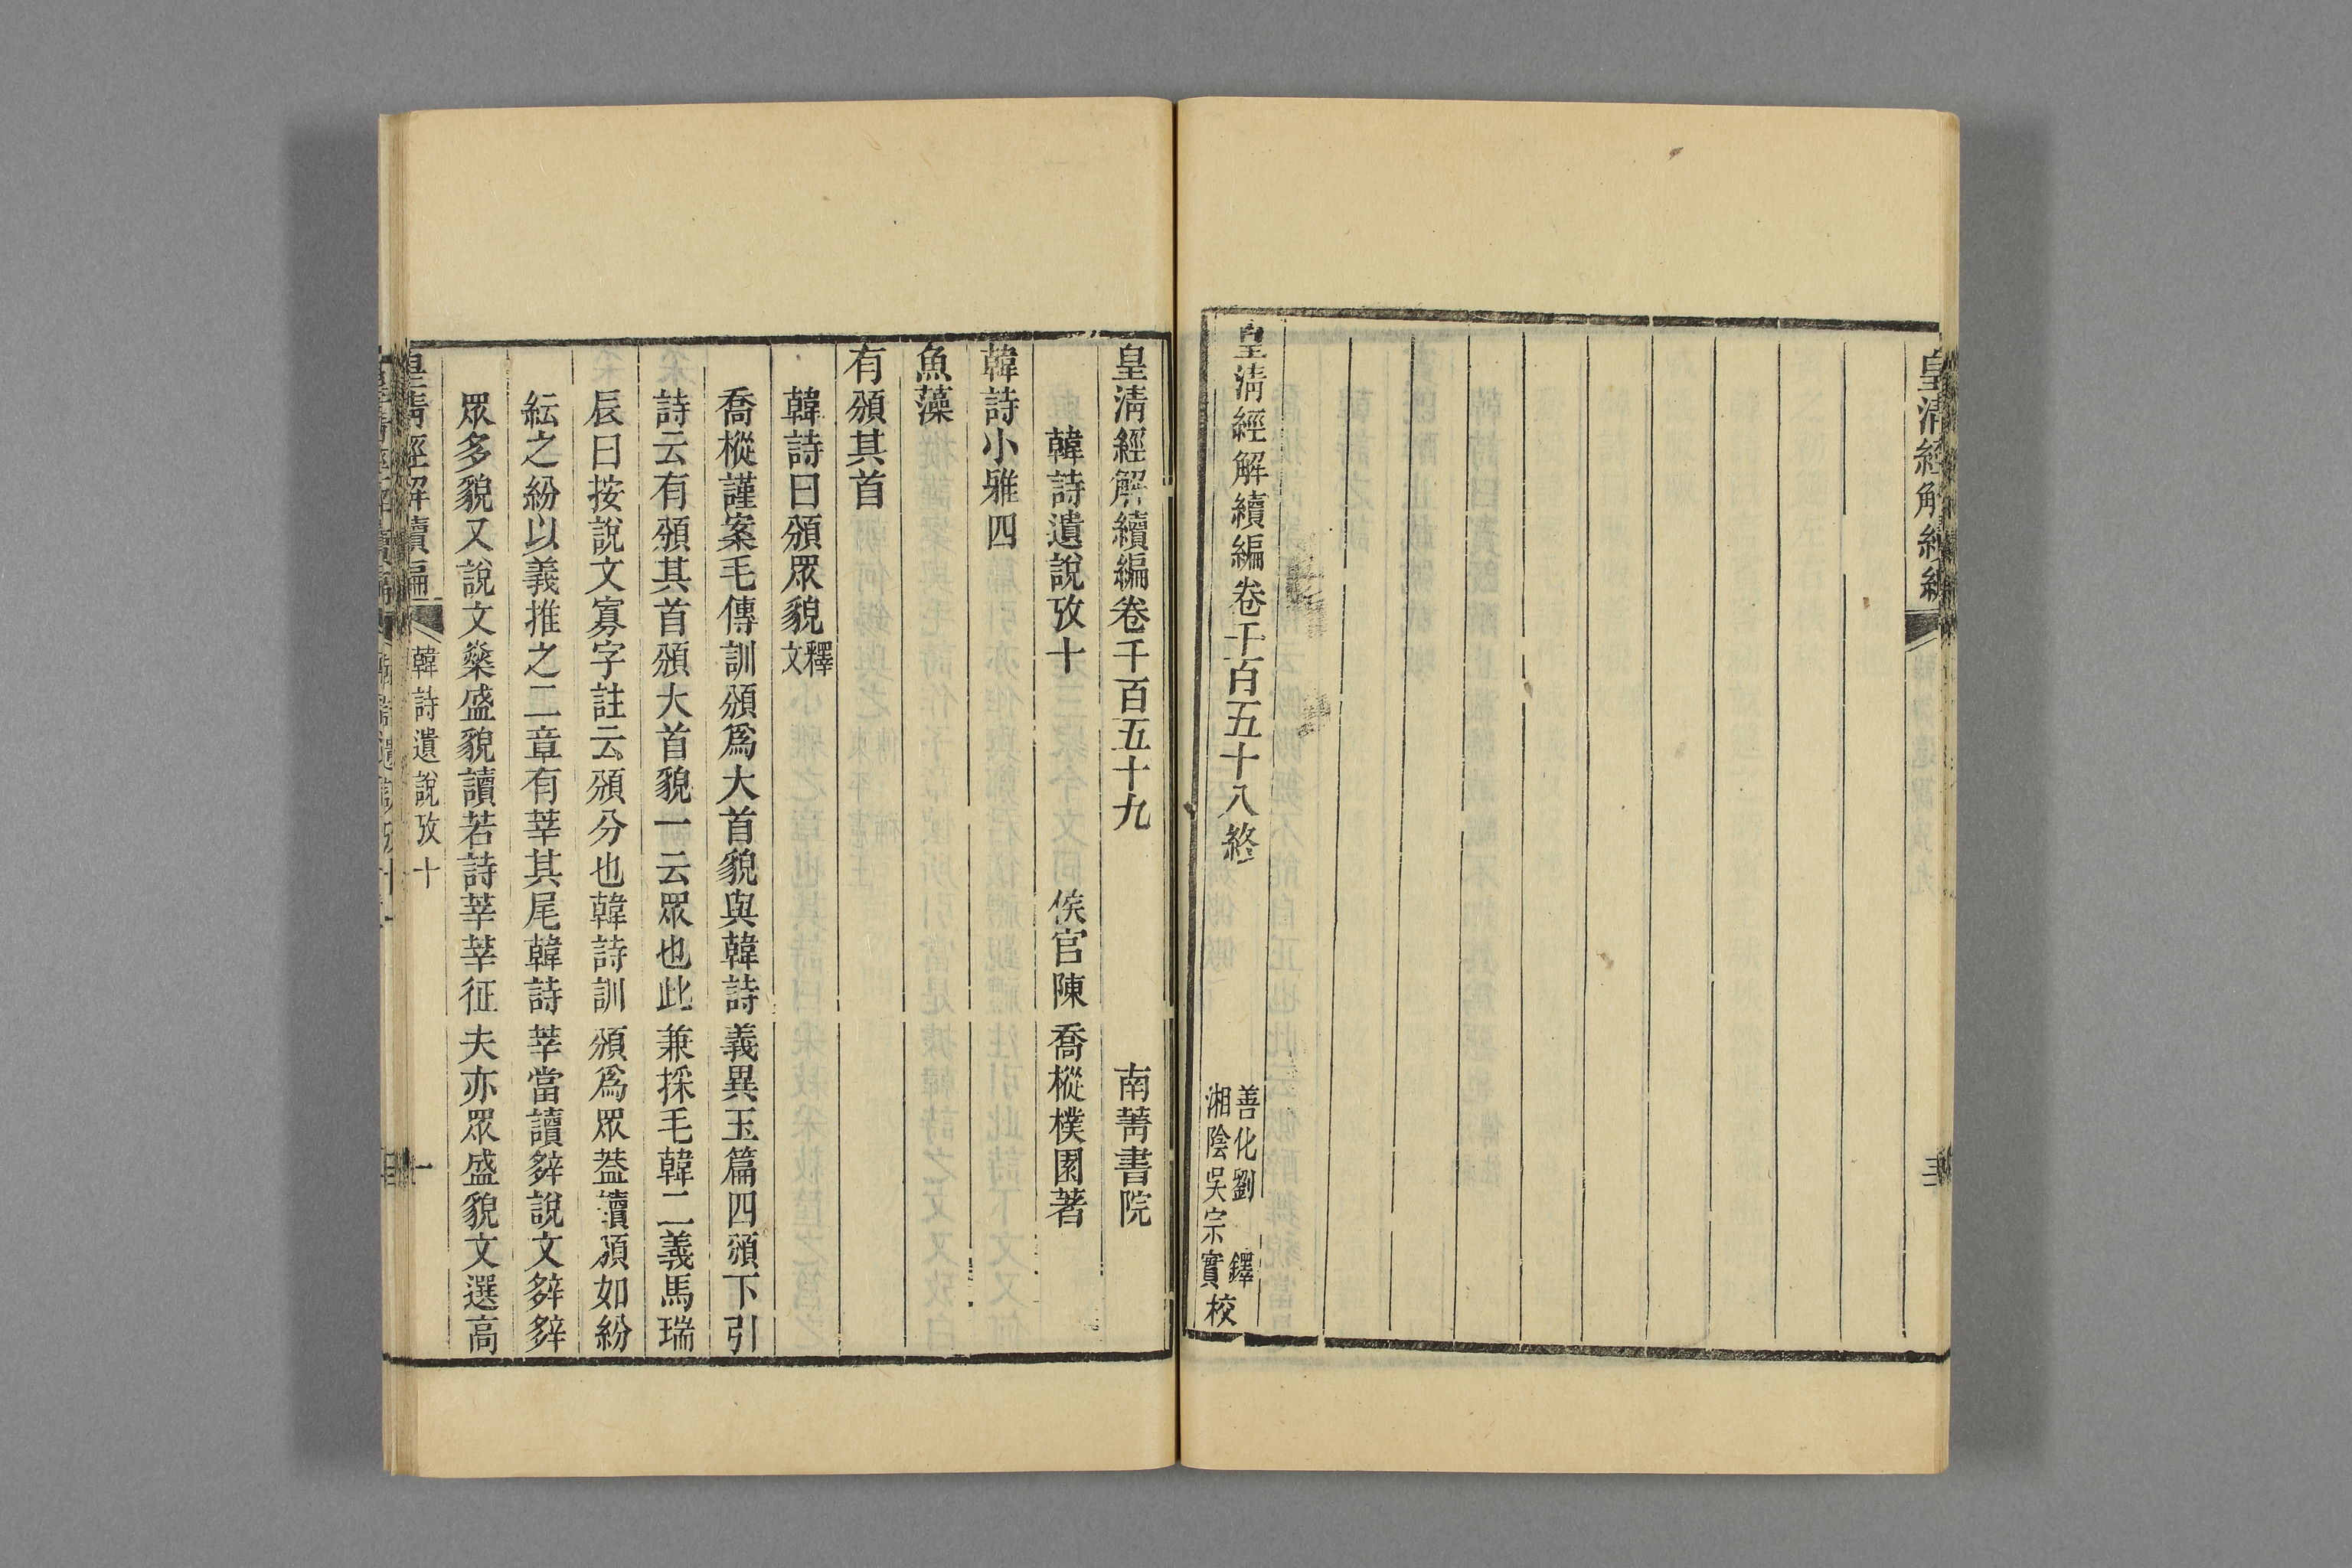 皇清經解續編
皇清經解續編卷千百五十八終
善化劉鐸
湘陰吳宗實校
皇清經解續編卷千百五十九
南菁書院
韓詩遺說攷十
侯官陳喬樅樸園著
韓詩小雅四
魚藻
有頒其首
韓詩曰頒眾貌釋文
喬樅謹案毛傳訓頒爲大首貌與韓詩義異玉篇四頒下引
詩云有頒其首頒大首貌一云眾也此兼採毛韓二義馬瑞
辰曰按說文寡字註云頒分也韓詩訓頒爲眾葢讀頒如紛
紜之紛以義推之二章有莘其尾韓詩莘當讀㛤說文㛤㛤
眾多貌又說文燊盛貌讀若詩莘莘征夫亦眾盛貌文選高
皇清經解續編
韓詩遺說攷十
一